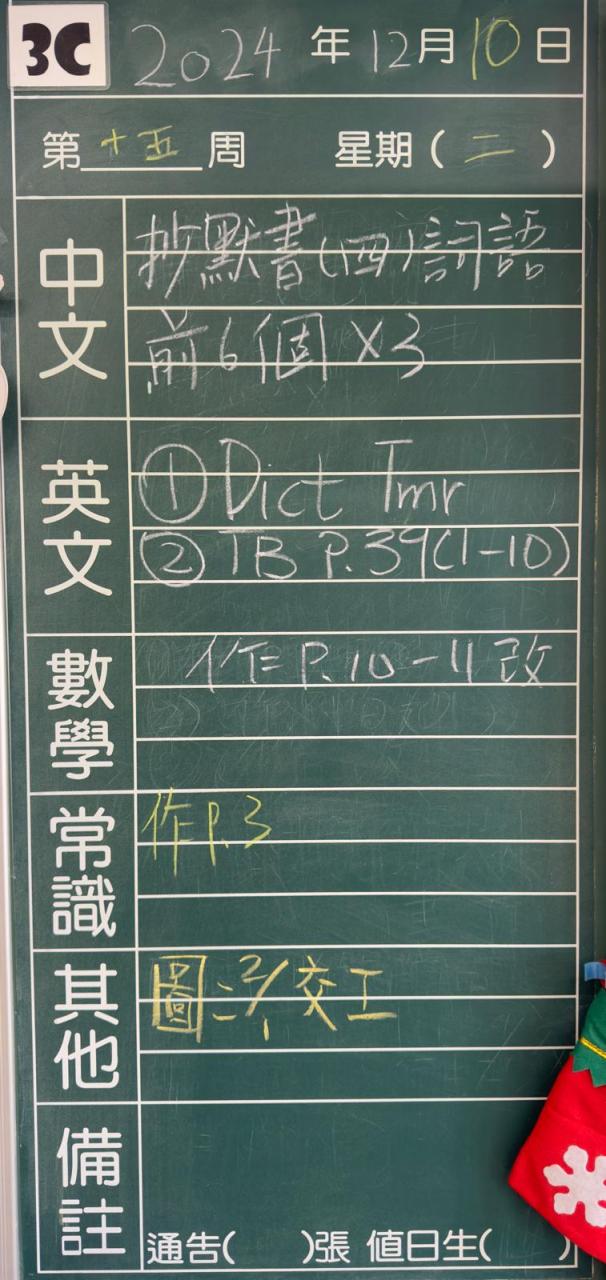 3C 2024 年 12月10日
第 十五 周 星期 ( 二 )
中文
抄默書(四)詞語
前6個 x3
英文
① Dict Tmr
② TB P.39(1-10)
數學
作 P.10-11 改
常識
作P.3
其他
圖:2/1 交工
備註
通告( )張 值日生( )